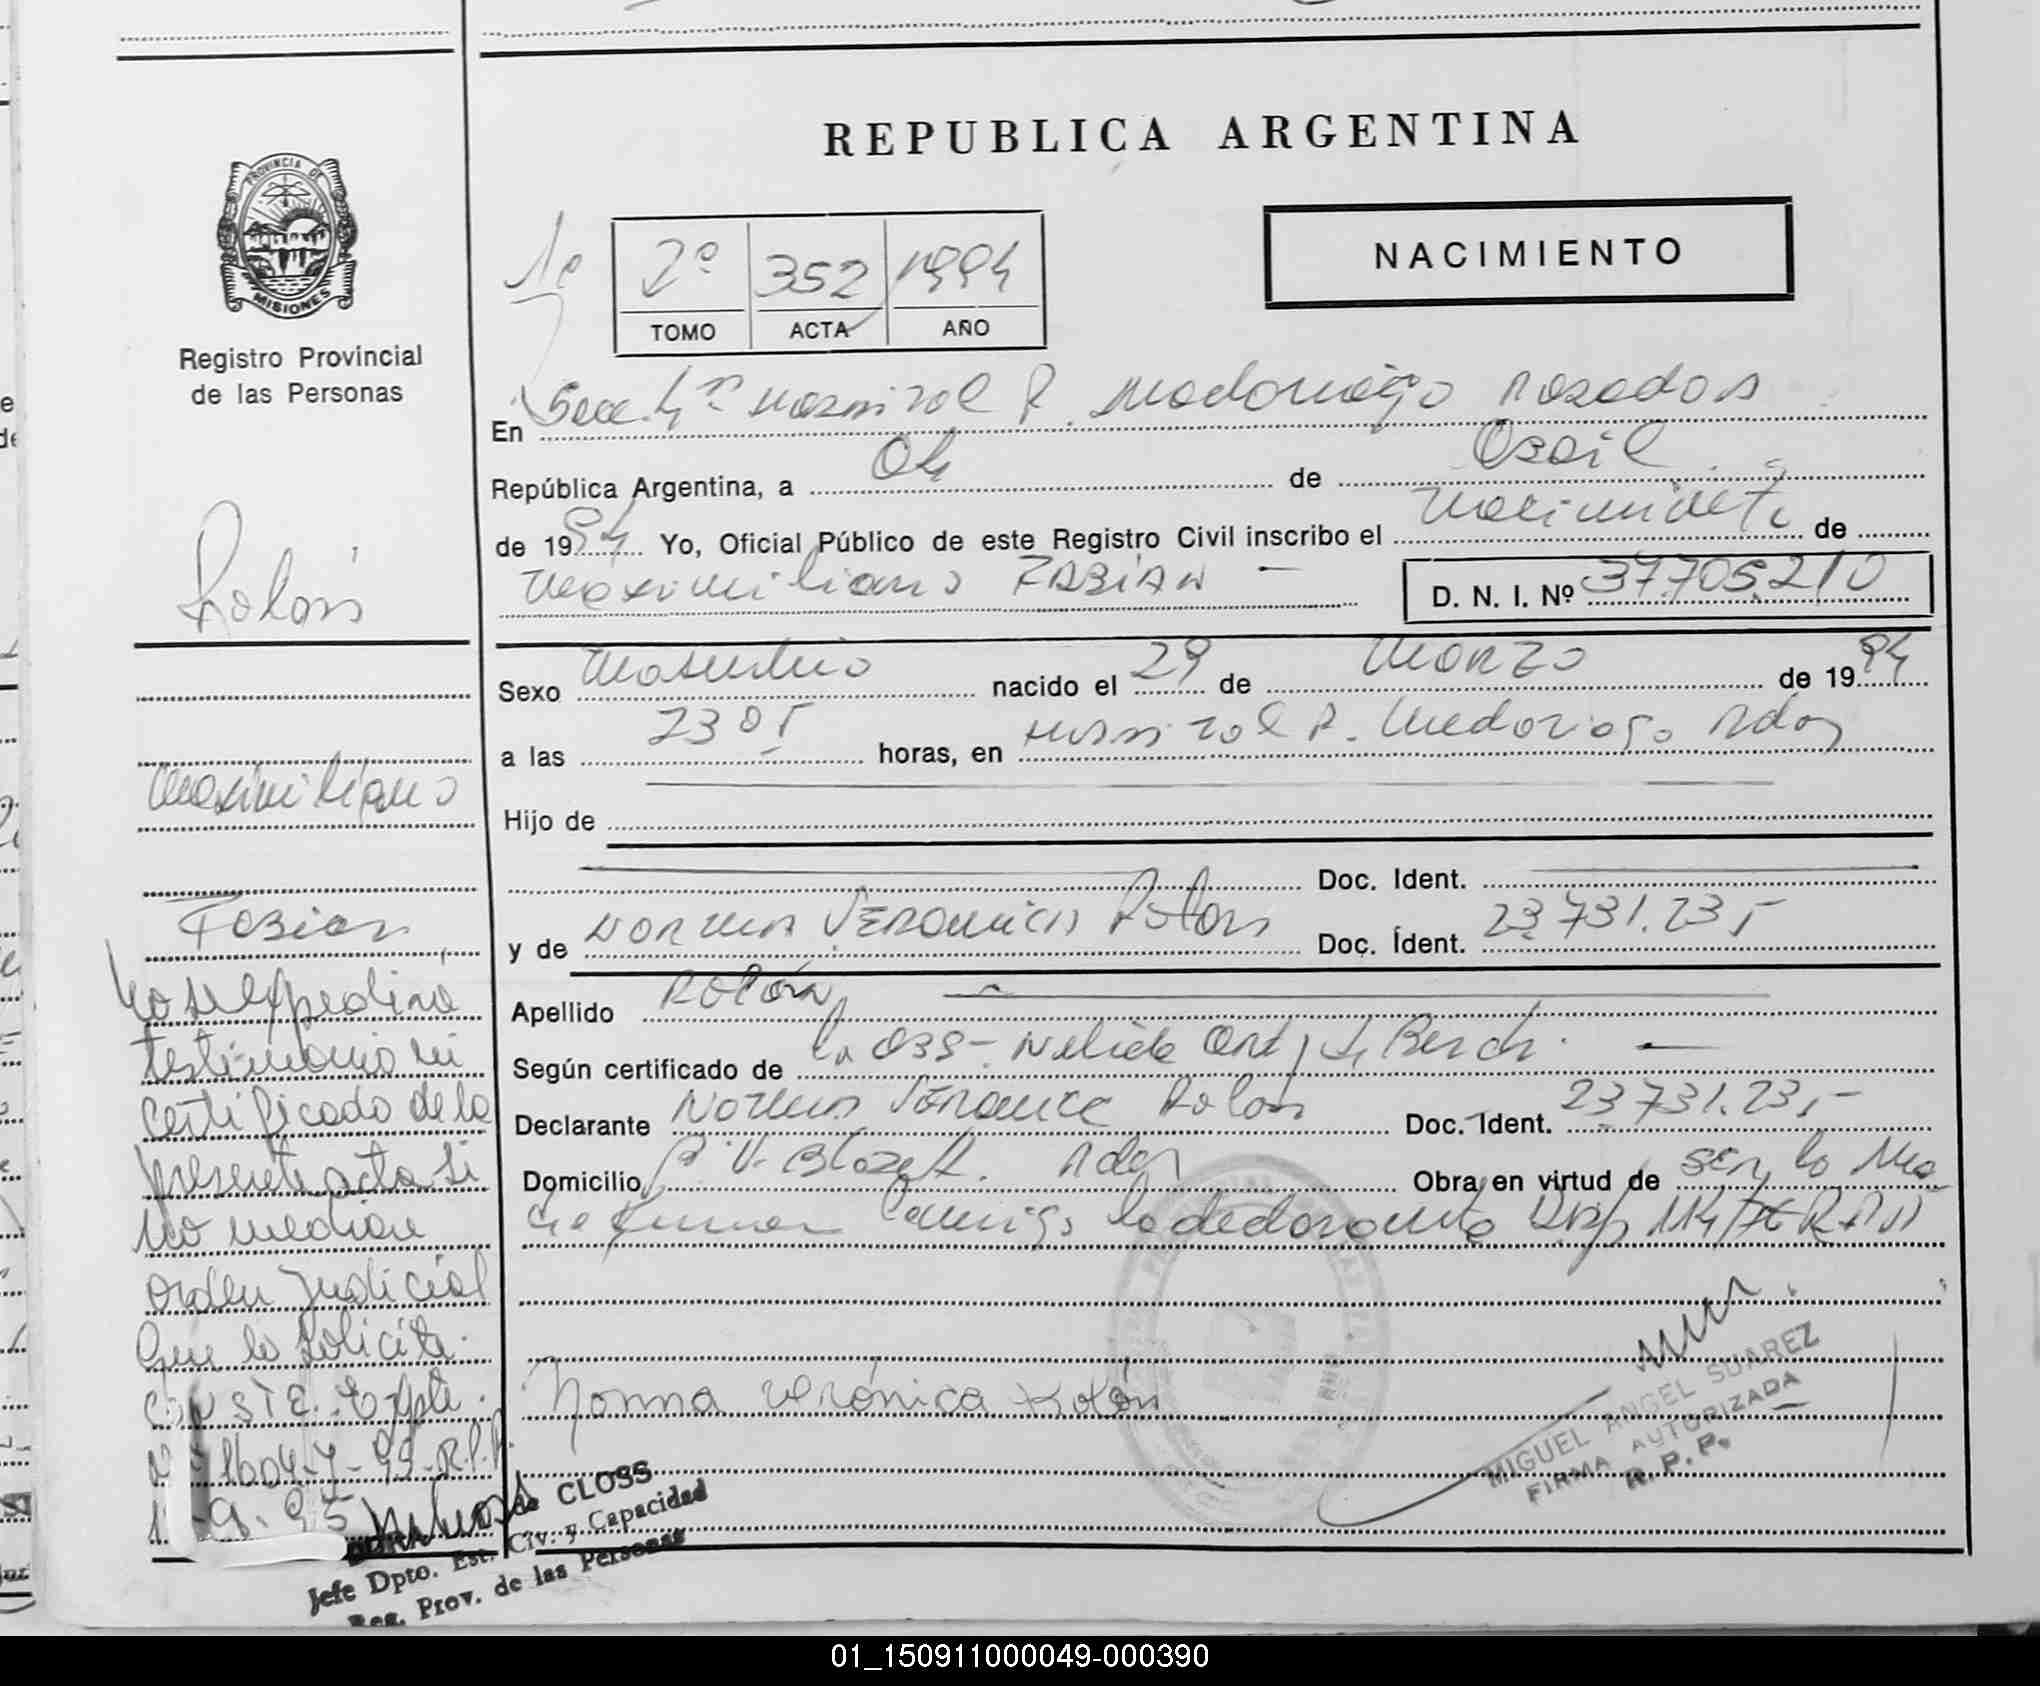 REPUBLICA ARGENTINA
PROVINCIA DE
MISIONES
Registro Provincial
de las Personas
NACIMIENTO
2º 352 1994
TOMO ACTA AÑO
En Secc. Hospital R. Madariaga Posadas
República Argentina, a 04 de Abril
de 1994 Yo, Oficial Público de este Registro Civil inscribo el nacimiento de
Maximiliano FABIAN —
D. N. I. Nº 37.705.210
Rolón
Maximiliano
Fabian
Sexo Masculino nacido el 29 de Marzo de 1994
a las 23 05 horas, en Hospital R. Madariaga Pdas
Hijo de
Doc. Ident.
y de Norma VERONICA Rolon Doc. Ident. 23.731.235
Apellido Rolón
Según certificado de la Obs- Nelida
Declarante Norma Veronica Rolon Doc. Ident. 23.731.235
Domicilio Pdas Obra en virtud de ser la Ma
dre firma conmigo la declarante Disp 114/76 R.P.P.
No se expedirá
testimonio ni
certificado de la
presente acta si
no mediare
orden judicial
que lo solicite.
CONSTE. Expte.
Norma Verónica Rolón
MIGUEL ANGEL SUAREZ
FIRMA AUTORIZADA
R. P. P.
de CLOSS
Jefe Dpto. Est. Civ. y Capacidad
Reg. Prov. de las Personas
01_150911000049-000390